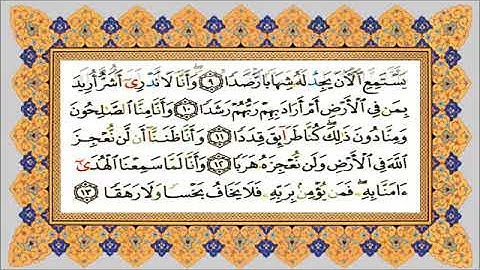 يَسْتَمِعِ ٱلْآنَ يَجِدْ لَهُۥ شِهَابًا رَّصَدًا ٩ وَأَنَّا لَا نَدْرِىٓ أَشَرٌّ أُرِيدَ
بِمَن فِى ٱلْأَرْضِ أَمْ أَرَادَ بِهِمْ رَبُّهُمْ رَشَدًا ١٠ وَأَنَّا مِنَّا ٱلصَّٰلِحُونَ
وَمِنَّا دُونَ ذَٰلِكَ ۖ كُنَّا طَرَآئِقَ قِدَدًا ١١ وَأَنَّا ظَنَنَّآ أَن لَّن نُّعْجِزَ
ٱللَّهَ فِى ٱلْأَرْضِ وَلَن نُّعْجِزَهُۥ هَرَبًا ١٢ وَأَنَّا لَمَّا سَمِعْنَا ٱلْهُدَىٰٓ
ءَامَنَّا بِهِۦ ۖ فَمَن يُؤْمِنۢ بِرَبِّهِۦ فَلَا يَخَافُ بَخْسًا وَلَا رَهَقًا ١٣